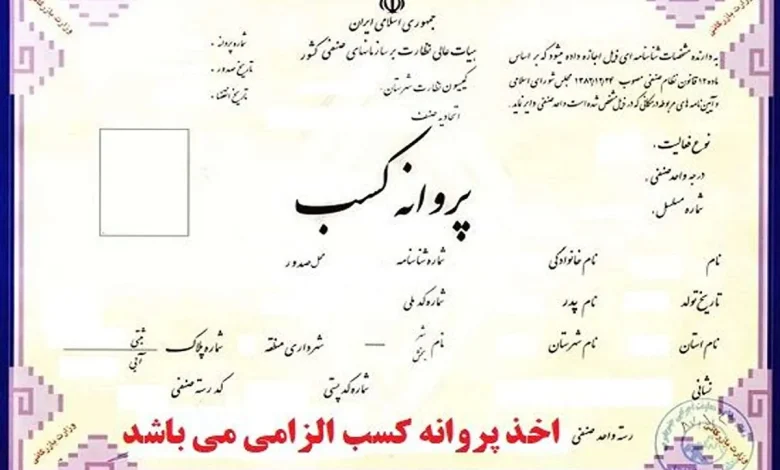 جمهوری اسلامی ایران
هیات عالی نظارت بر سازمانهای صنفی کشور
کمیسیون نظارت شهرستان:
اتحادیه صنف
شماره پروانه:
تاریخ صدور:
تاریخ انقضاء:
به دارنده مشخصات شناسنامه ای ذیل اجازه داده میشود که بر اساس
ماده ۱۲ قانون نظام صنفی مصوب ۱۳۸۲/۱۲/۲۴ مجلس شورای اسلامی
و آیین نامه های مربوطه در مکانی که در ذیل مشخص شده است واحد صنفی دایر نماید.
نوع فعالیت:
درجه واحد صنفی:
شماره مسلسل:
پروانه کسب
نام نام خانوادگی شماره شناسنامه محل صدور
تاریخ تولد نام پدر شماره کد ملی
نام استان نام شهرستان نام شهر بخش شهرداری منطقه شماره پلاک ثبتی آبی
نشانی شماره کد پستی کد رسته صنفی
رسته واحد صنفی اخذ پروانه کسب الزامی می باشد
وزارت بازرگانی
وزارت بازرگانی
وزارت بازرگانی
وزارت بازرگانی